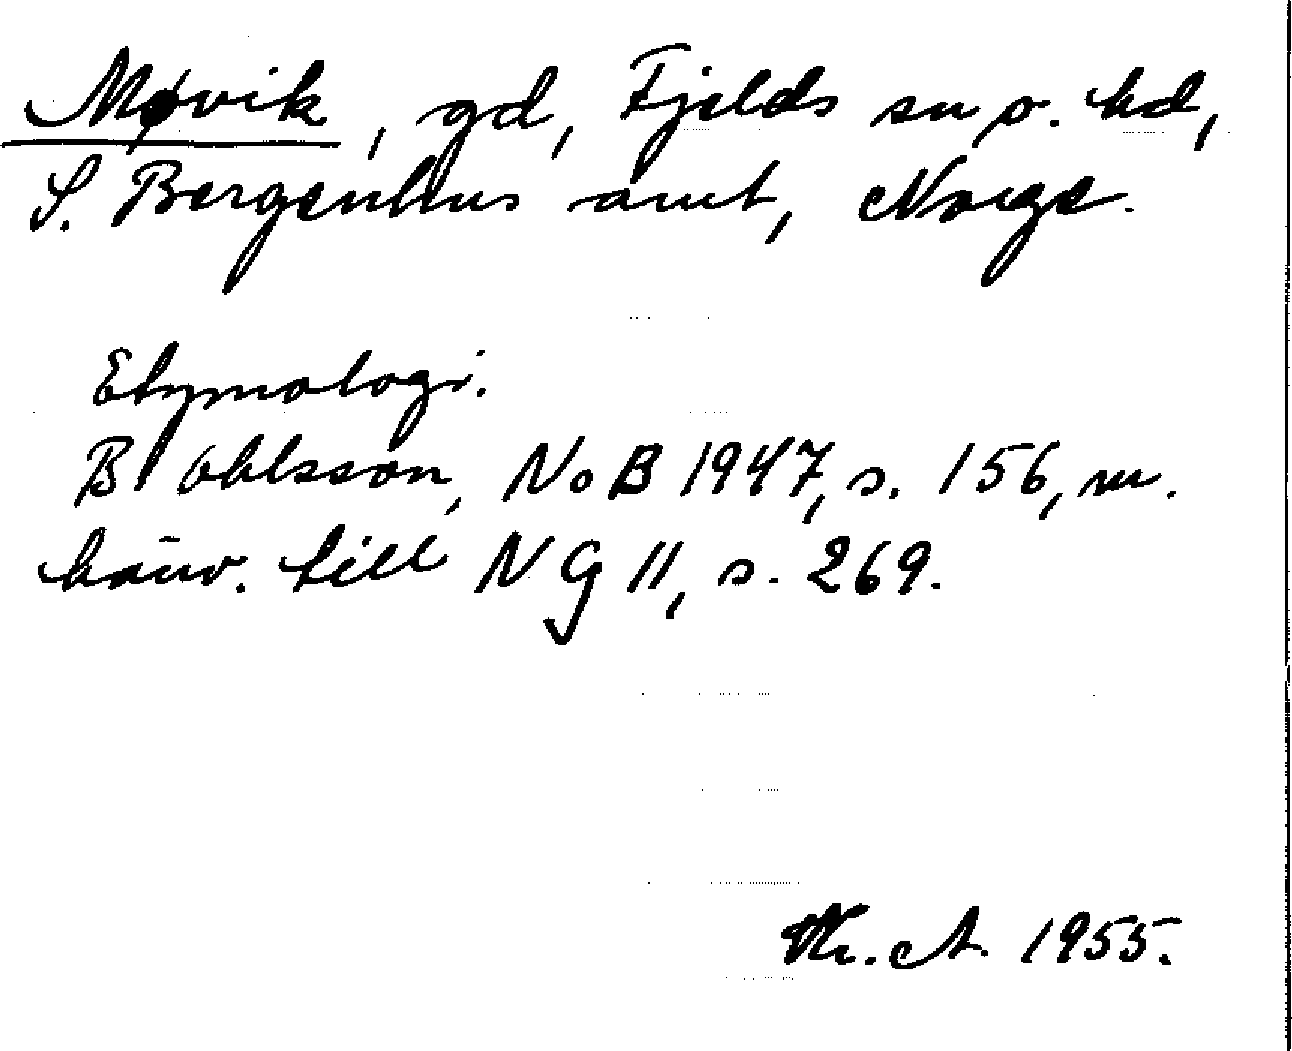 Møvik, gd, Fjelds sn o. hd,
S. Bergenhus amt, Norge.
Etymologi.
B Ohlsson, NoB 1947, s. 156, m.
hänv. till NG 11, s. 269.
A. 1955.